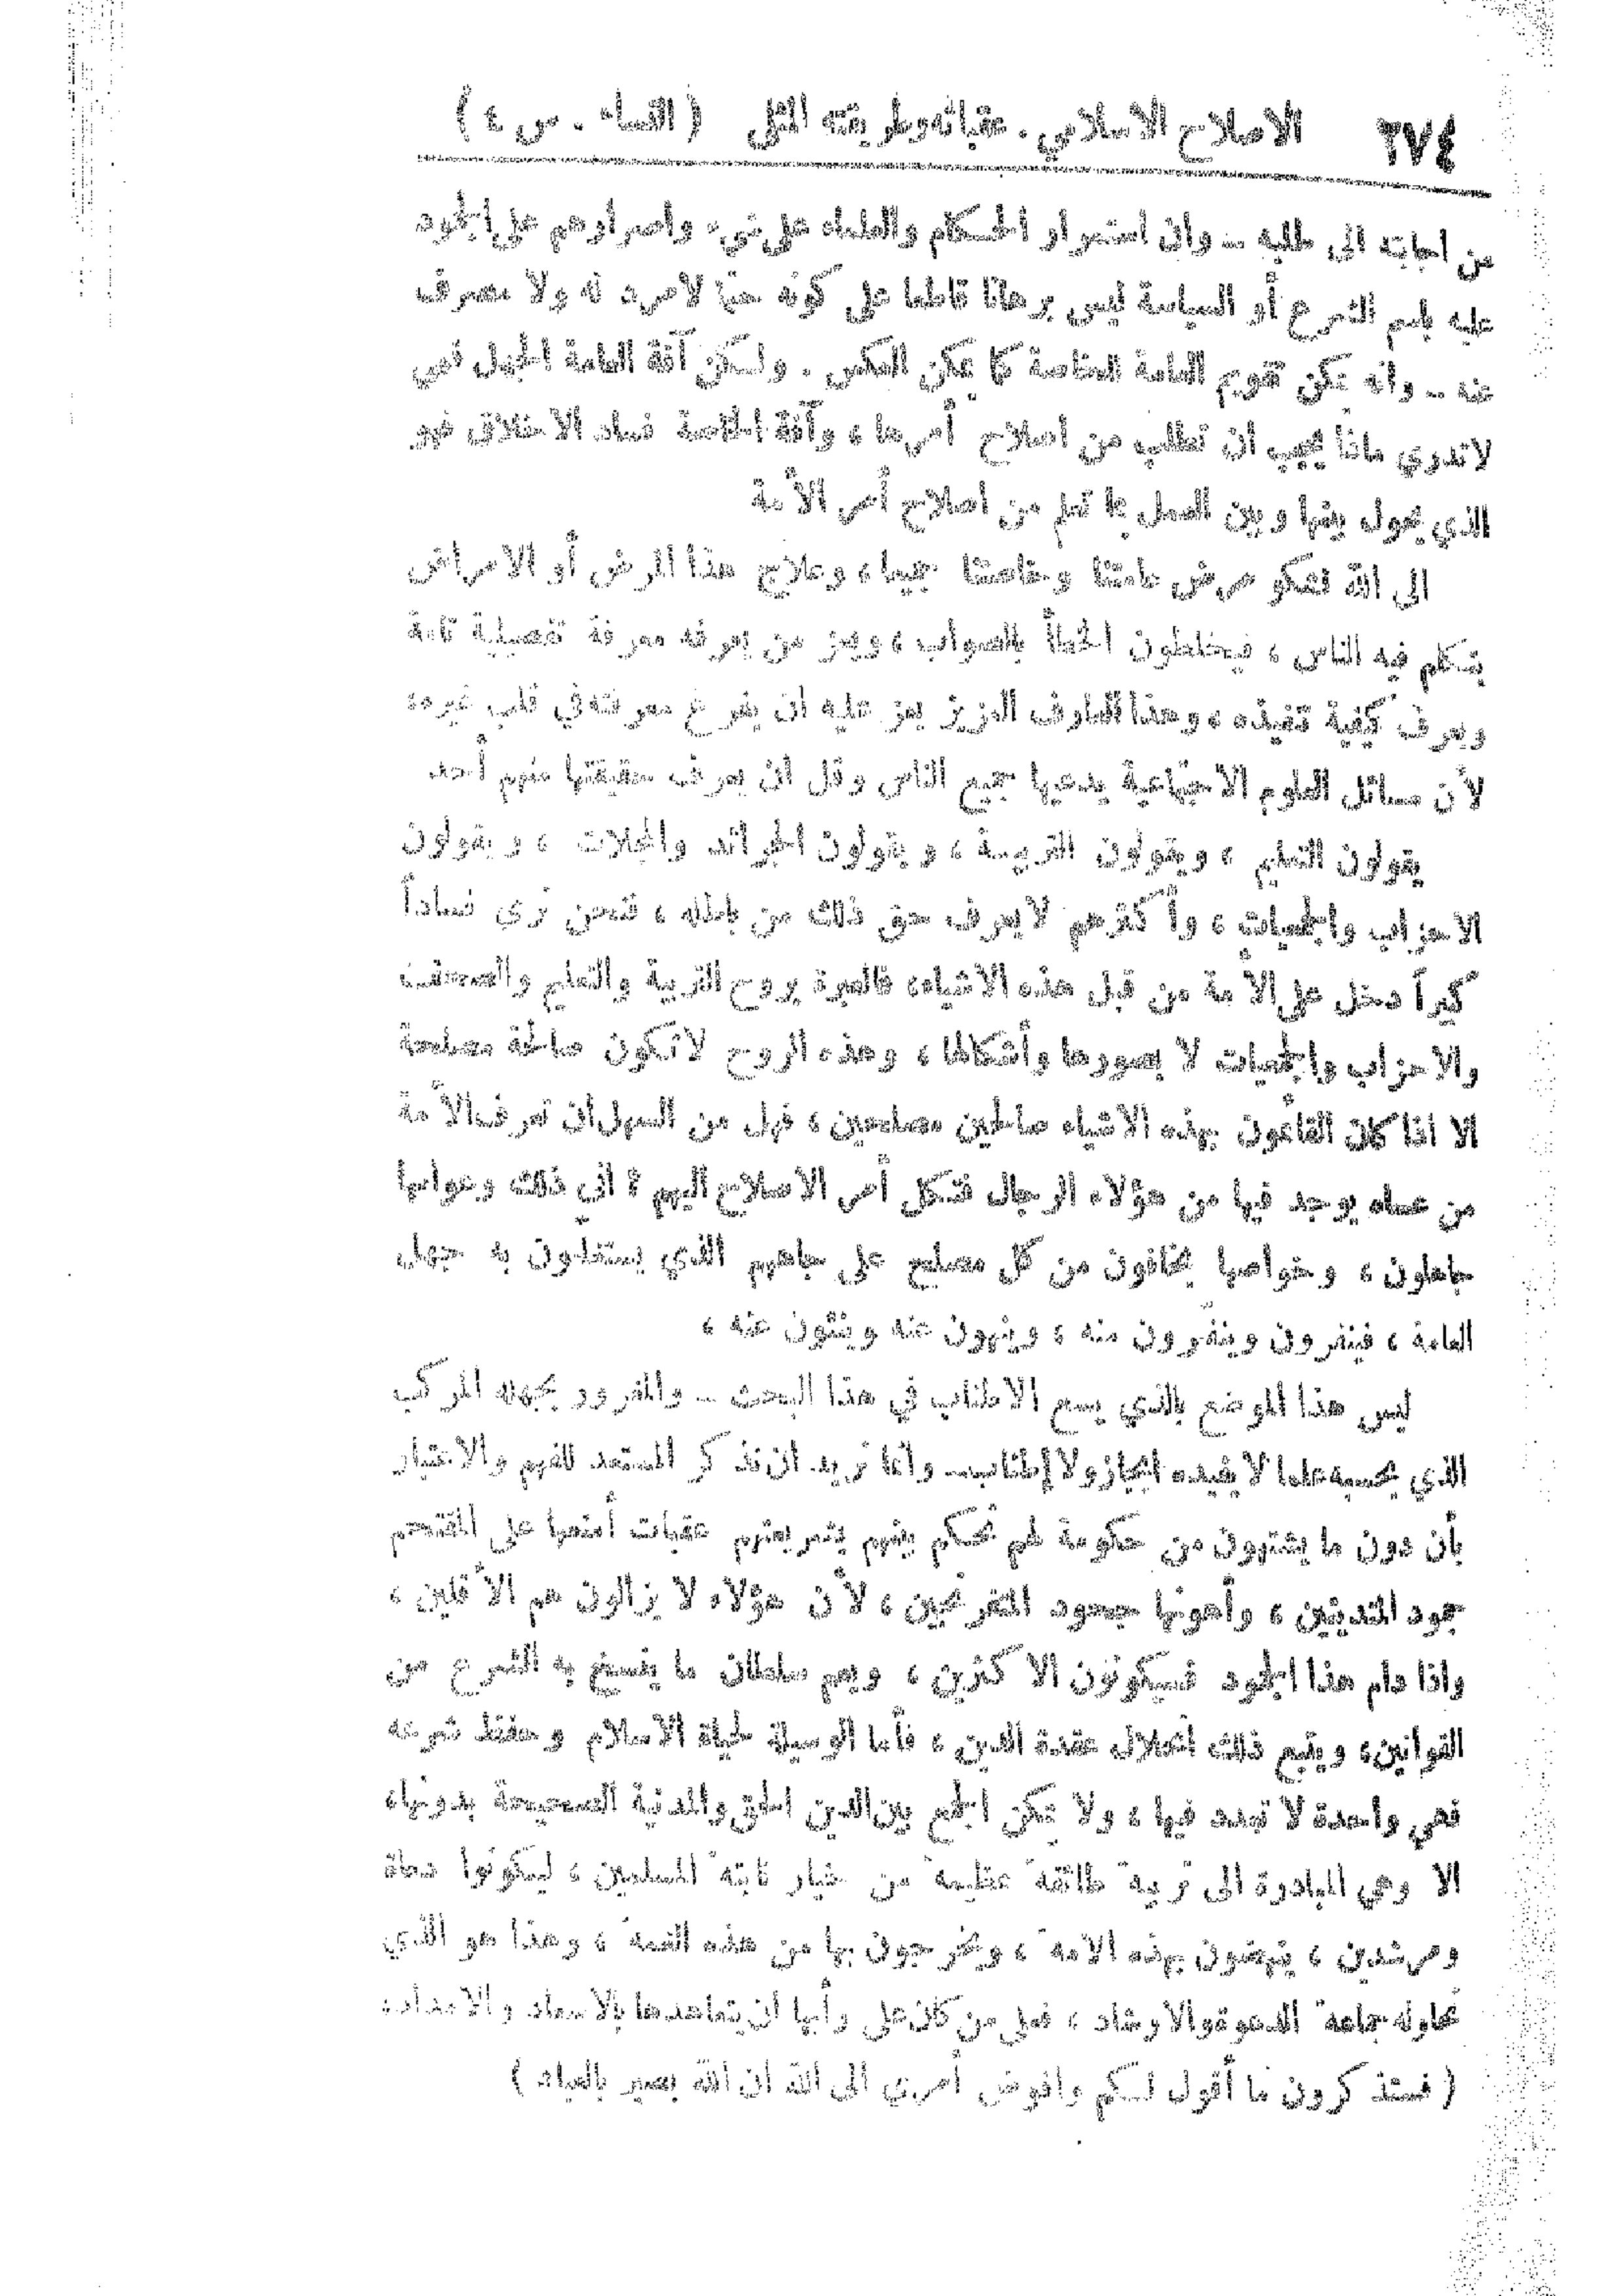 ٣٧٤ الاصلاح الاسلامي. عقباته وطريقته المثلى ( النساء . س ٤ )
من اجابته الى طلبه – وان استمرار الحكام والعلماء على شيء واصرارهم على الجمود
عليه باسم الشرع أو السياسة ليس برهانا قاطعا على كونه حتما لامرد له ولا مصرف
عنه – وانه يمكن تقويم العامة للخاصة كما يمكن العكس . ولكن آفة العامة الجهل فهي
لاتدري ماذا يجب ان تطلب من اصلاح أمرها ، وآفة الخاصة فساد الاخلاق فهو
الذي يحول بينها وبين العمل بما تعلم من اصلاح أمر الأمة
الى الله نشكو مرض عامتنا وخاصتنا جميعا ، وعلاج هذا المرض أو الامراض
يتكلم فيه الناس ، فيخلطون الخطأ بالصواب ، ويعز من يعرفه معرفة تفصيلية تامة
ويعرف كيفية تنفيذه ، وهذا العارف العزيز يعز عليه ان يفرغ معرفته في قلب غيره ،
لأن مسائل العلوم الاجتماعية يدعيها جميع الناس وقل ان يعرف حقيقتها منهم أحد
يقولون التعليم ، ويقولون التربية ، ويقولون الجرائد والمجلات ، ويقولون
الاحزاب والجمعيات ، وأكثرهم لايعرف حق ذلك من باطله ، فنحن نرى فساداً
كبيراً دخل على الأمة من قبل هذه الاشياء ، فالعبرة بروح التربية والتعليم والصحف
والاحزاب والجمعيات لا بصورها وأشكالها ، وهذه الروح لاتكون صالحة مصلحة
الا اذا كان القائمون بهذه الاشياء صالحين مصلحين ، فهل من السهل ان تعرف الأمة
من عساه يوجد فيها من هؤلاء الرجال فتكل أمر الاصلاح اليهم ؟ انى ذلك وعوامها
جاهلون ، وخواصها يخافون من كل مصلح على جاههم الذي يستغلون به جهل
العامة ، فينفرون وينفّرون منه ، وينهون عنه وينئون عنه ،
ليس هذا الموضع بالذي يسع الاطناب في هذا البحث – والمغرور بجهله المركب
الذي يحسبه علما لا يفيده ايجاز ولا إطناب – وانما نريد ان نذكر المستعد للفهم والاعتبار
بأن دون ما يشتهون من حكومة لهم تحكم بينهم بشريعتهم عقبات أمنعها على المقتحم
جمود المتدينين ، وأهونها جحود المتفرنجين ، لأن هؤلاء لا يزالون هم الأقلين ،
واذا دام هذا الجمود فسيكونون الاكثرين ، ويعم سلطان ما ينسخ به الشرع من
القوانين ، ويتبع ذلك انحلال عقدة الدين ، فأما الوسيلة لحياة الاسلام وحفظ شرعه
فهي واحدة لا تعدد فيها ، ولا يمكن الجمع بين الدين الحق والمدنية الصحيحة بدونها ،
الا وهي المبادرة الى تربية طائفة عظيمة من خيار نابتة المسلمين ، ليكونوا دعاة
ومرشدين ، ينهضون بهذه الامة ، ويخرجون بها من هذه الغمة ، وهذا هو الذي
تحاوله جماعة الدعوة والارشاد ، فعلى من كان على رأيها ان يتعاهدها بالاسعاد والامداد ،
( فستذكرون ما أقول لكم وافوض أمري الى الله ان الله بصير بالعباد )